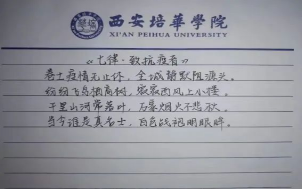 西安培華學院
XI'AN PEIHUA UNIVERSITY
《七律·致抗疫者》
疫情无止休,全城静默阻源头。
纷纷飞鸟栖高树,寂寂西风上小楼。
千里山河常落叶,万家烟火不悲秋。
当今谁是真名士,百战归明眼眸。